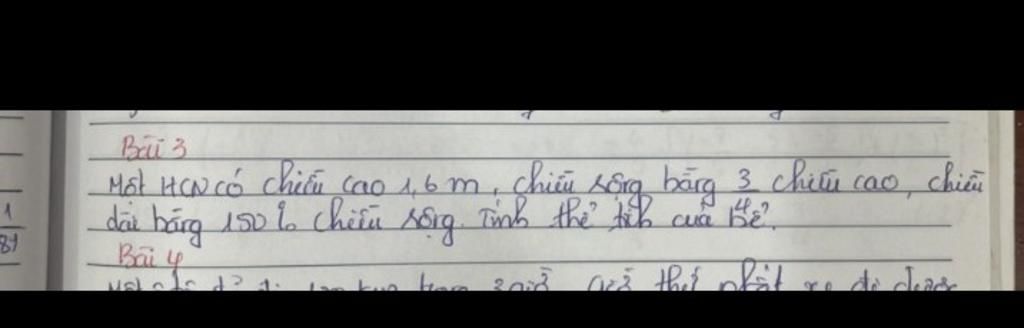 1
81
Bài 3
Một HCN có chiều cao 1,6 m, chiều rộng bằng 3/4 chiều cao, chiều
dài bằng 150 % chiều rộng. Tính thể tích của bể?
Bài 4